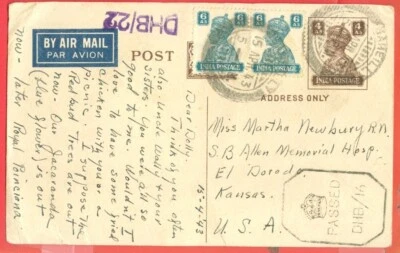 DHB/22
BY AIR MAIL
PAR AVION
POST
6 As 6 As
INDIA POSTAGE INDIA POSTAGE
INDIA POSTAGE
15 4 43
ADDRESS ONLY
15-4-43
Dear Dolly-
Think of you often
also Uncle Wally & your
sister. You were all so
good to me. Wouldn't I
love to have some fried
chicken with you on a
picnic. I suppose the
Redbud Trees are out
now. Our Jacaranda
(blue flowers) is out
now - later Royal Poinciana
Miss Martha Newbury R.N.
S.B Allen Memorial Hosp.
El Dorado
Kansas.
U. S. A.
PASSED
DHB/14